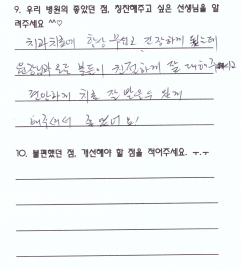 9. 우리 병원의 좋았던 점, 칭찬해주고 싶은 선생님을 알
려주세요 ^^♡
치과치료에 항상 무섭고 긴장하게 됬는데
원장님과 모든 분들이 친절하게 잘 대해주시고
편안하게 치료 잘 받을수 있게
해주셔서 좋았어요!
10. 불편했던 점, 개선해야 할 점을 적어주세요. ㅜ.ㅜ